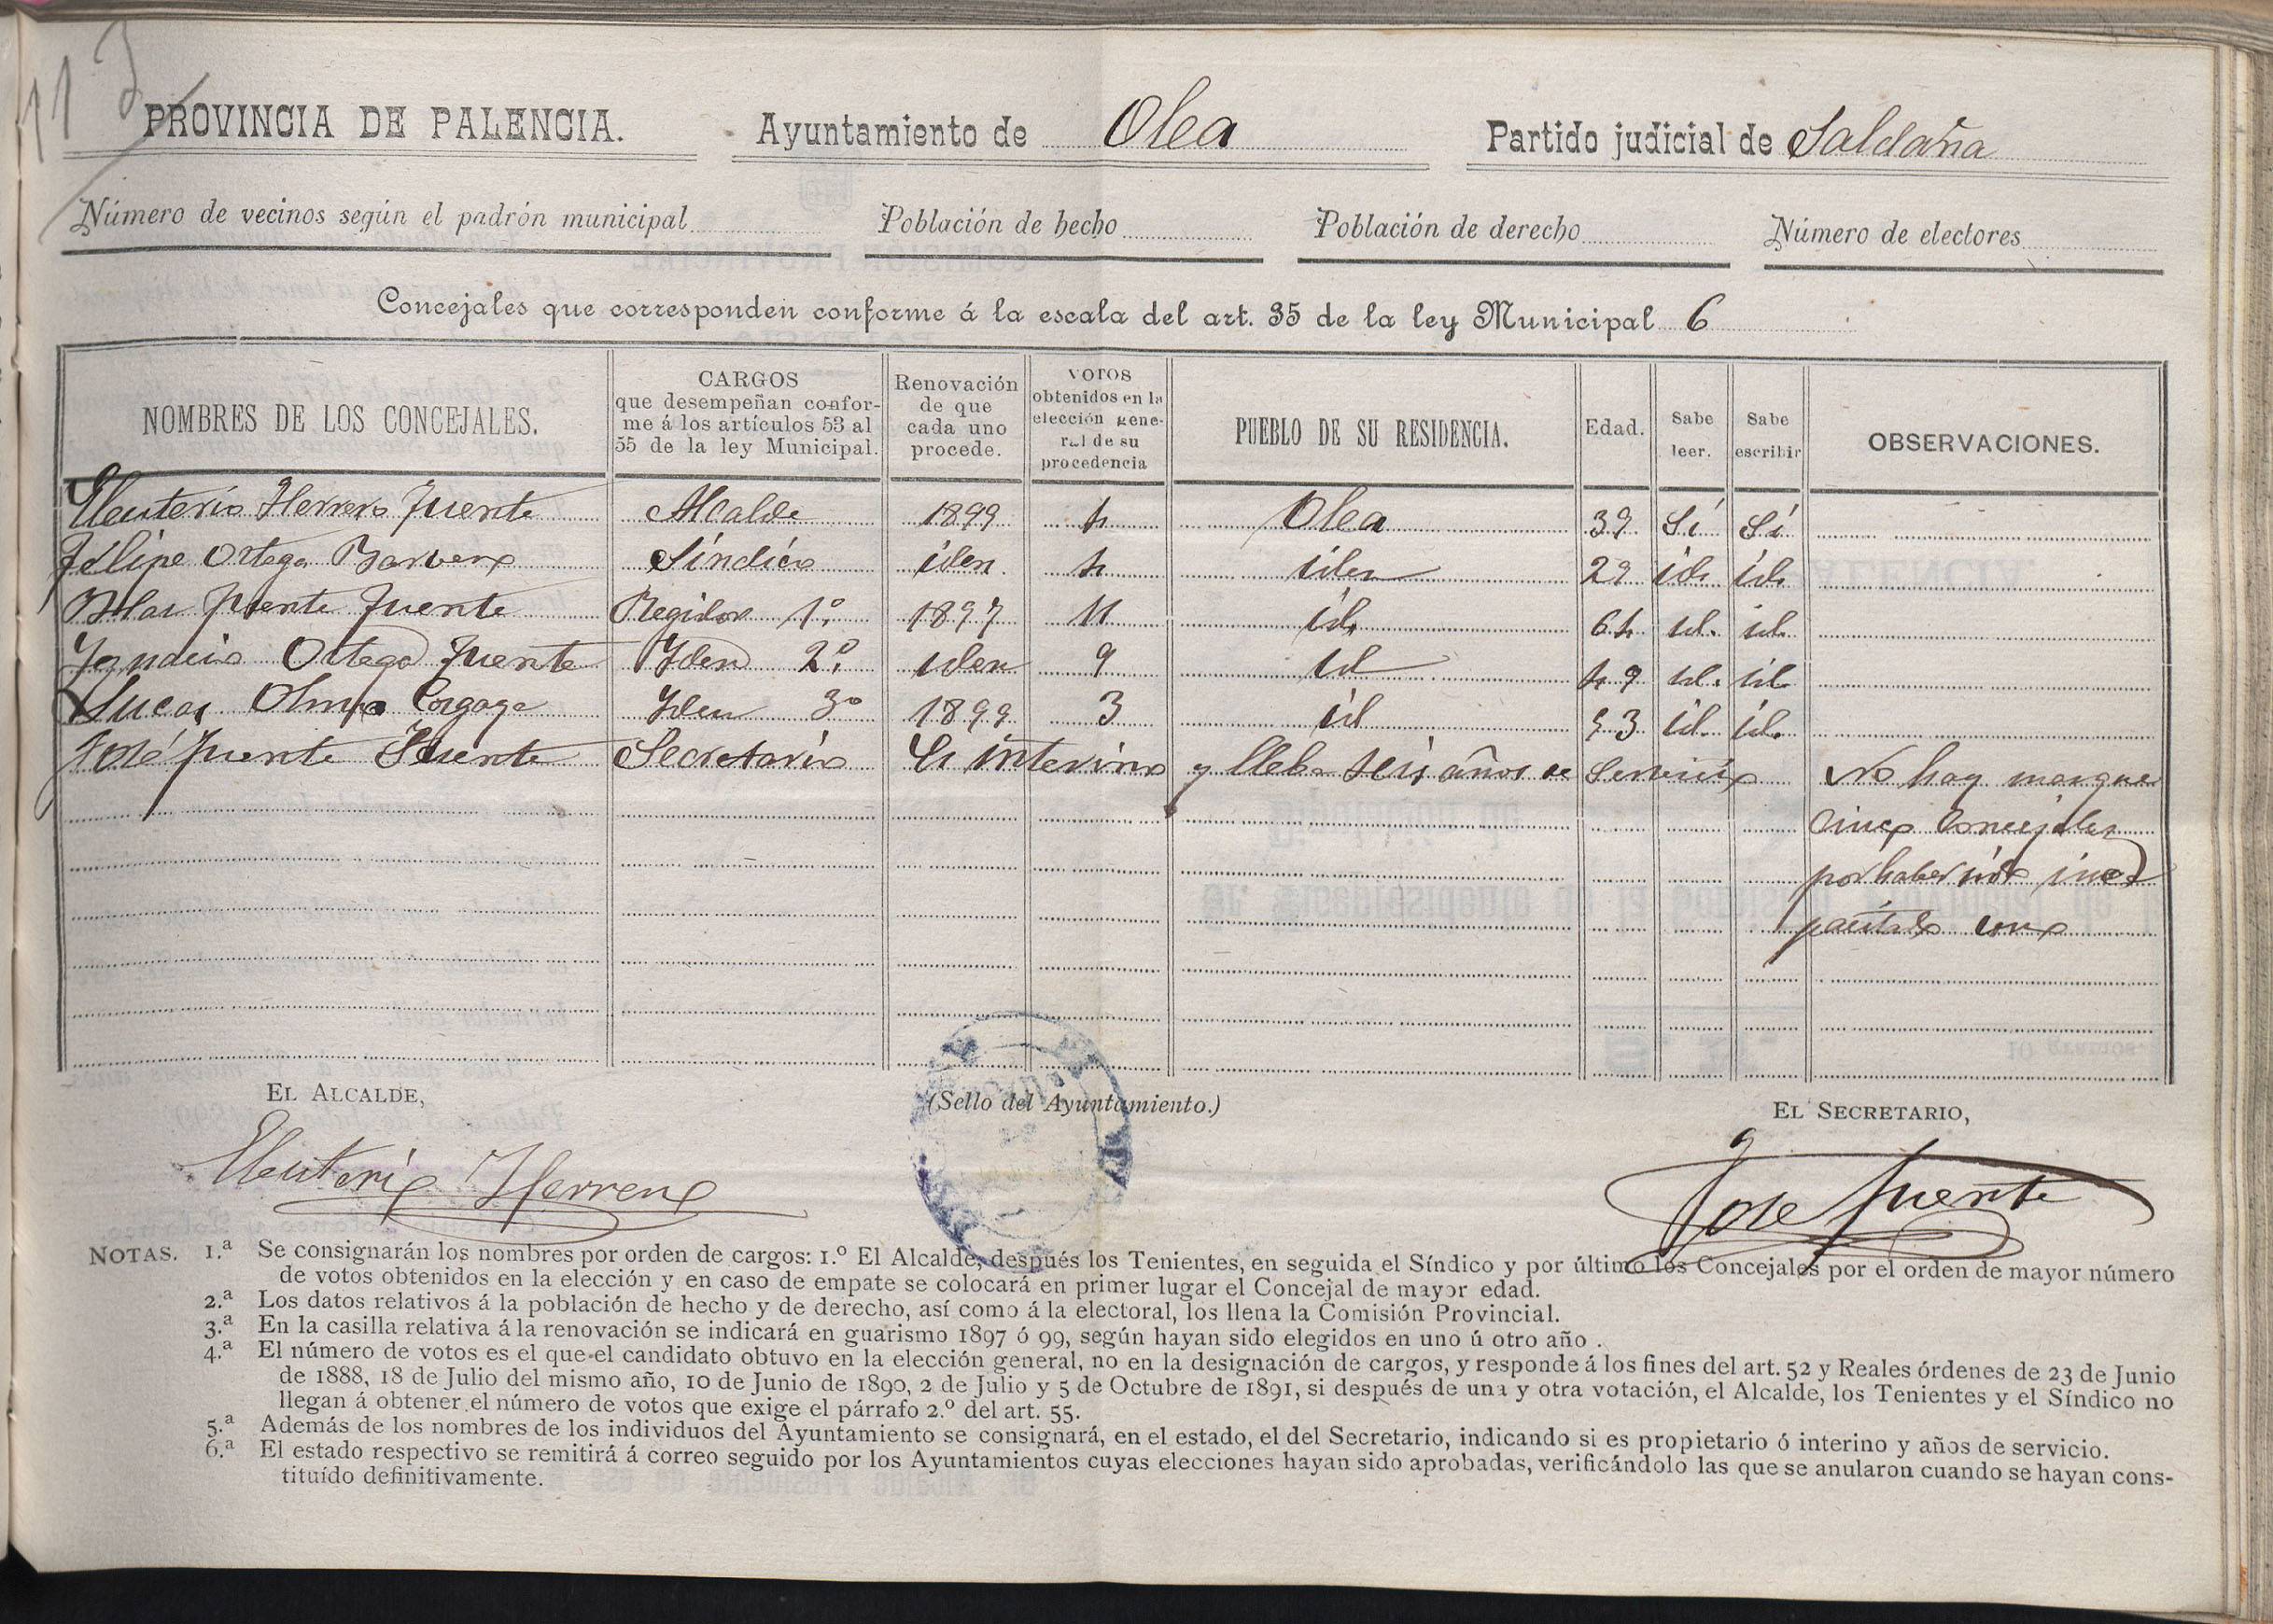 113
PROVINCIA DE PALENCIA. Ayuntamiento de Olea Partido judicial de Saldaña
Número de vecinos según el padrón municipal Población de hecho Población de derecho Número de electores
Concejales que corresponden conforme á la escala del art. 35 de la ley Municipal 6
NOMBRES DE LOS CONCEJALES.
CARGOS
que desempeñan confor-
me á los artículos 53 al
55 de la ley Municipal.
Renovación
de que
cada uno
procede.
VOTOS
obtenidos en la
elección gene-
ral de su
procedencia
PUEBLO DE SU RESIDENCIA.
Edad.
Sabe
leer.
Sabe
escribir
OBSERVACIONES.
Eleuterio Herrero Fuente Alcalde 1899 4 Olea 39 Sí Sí
Felipe Ortega Barbero Síndico iden 4 iden 29 id. id.
Blas Fuente Fuente Regidor 1º. 1897 11 id. 64 id. id.
Ignacio Ortega Fuente Yden 2º. iden 9 id 49 id. id
Lucas Olmo 3º Yden 1899 3 id 53 id. id.
José Fuente Fuente Secretario Es interino y lleba seis años de servicio No hay mas que
cinco Concejales
por haber sido inca
pacitado uno
EL ALCALDE, (Sello del Ayuntamiento.) EL SECRETARIO,
Eleuterio Herrero
José Fuente
NOTAS. 1.ª Se consignarán los nombres por orden de cargos: 1.º El Alcalde, después los Tenientes, en seguida el Síndico y por último los Concejales por el orden de mayor número
de votos obtenidos en la elección y en caso de empate se colocará en primer lugar el Concejal de mayor edad.
2.ª Los datos relativos á la población de hecho y de derecho, así como á la electoral, los llena la Comisión Provincial.
3.ª En la casilla relativa á la renovación se indicará en guarismo 1897 ó 99, según hayan sido elegidos en uno ú otro año.
4.ª El número de votos es el que el candidato obtuvo en la elección general, no en la designación de cargos, y responde á los fines del art. 52 y Reales órdenes de 23 de Junio
de 1888, 18 de Julio del mismo año, 10 de Junio de 1890, 2 de Julio y 5 de Octubre de 1891, si después de una y otra votación, el Alcalde, los Tenientes y el Síndico no
llegan á obtener el número de votos que exige el párrafo 2.º del art. 55.
5.ª Además de los nombres de los individuos del Ayuntamiento se consignará, en el estado, el del Secretario, indicando si es propietario ó interino y años de servicio.
6.ª El estado respectivo se remitirá á correo seguido por los Ayuntamientos cuyas elecciones hayan sido aprobadas, verificándolo las que se anularon cuando se hayan cons-
tituído definitivamente.